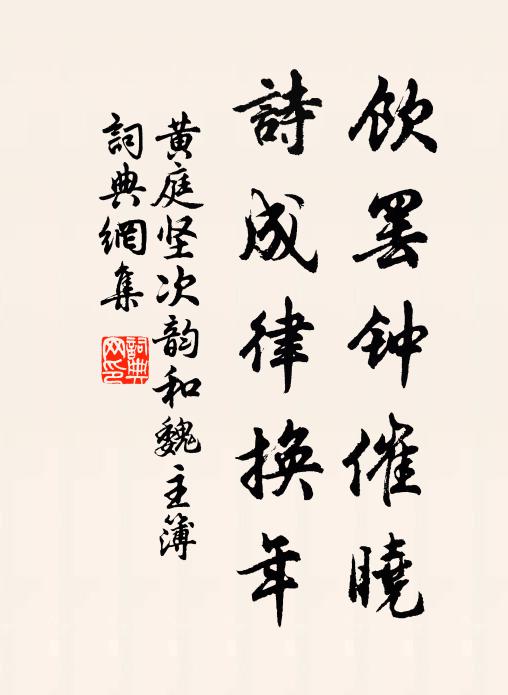 饮罢钟催曉
詩成律换年
黄庭坚次韵和魏主簿
詞典網集
詞典網印